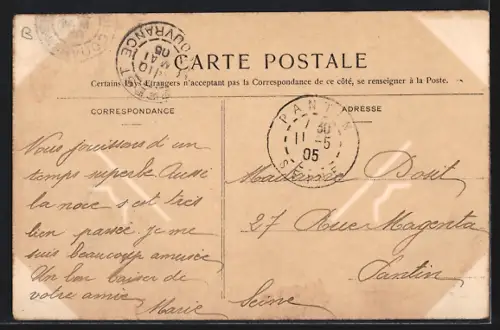 B
10 MAI 05
CARTE POSTALE
Certains Pays Etrangers n'acceptant pas la Correspondance de ce côté, se renseigner à la Poste.
CORRESPONDANCE
ADRESSE
PANTIN
7 30
11 - 5
05
SEINE
Nous jouissons d'un
temps superbe Aussi
la noce s'est très
bien passée. je me
suis beaucoup amusée
Un bon baiser de
votre amie
Marie
Madame
27 Rue Magenta
Pantin
Seine